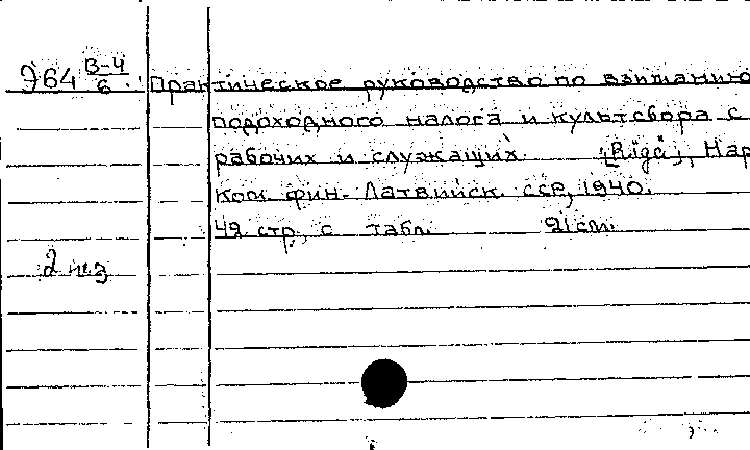 Э64 В-4/6 Практическое руководство по взиманию
подоходного налога и культсбора с
рабочих и служащих [Rīgā], Нар
ком. фин. Латвийск. ССР, 1940.
42 стр, с табл. 21 см.
2 экз